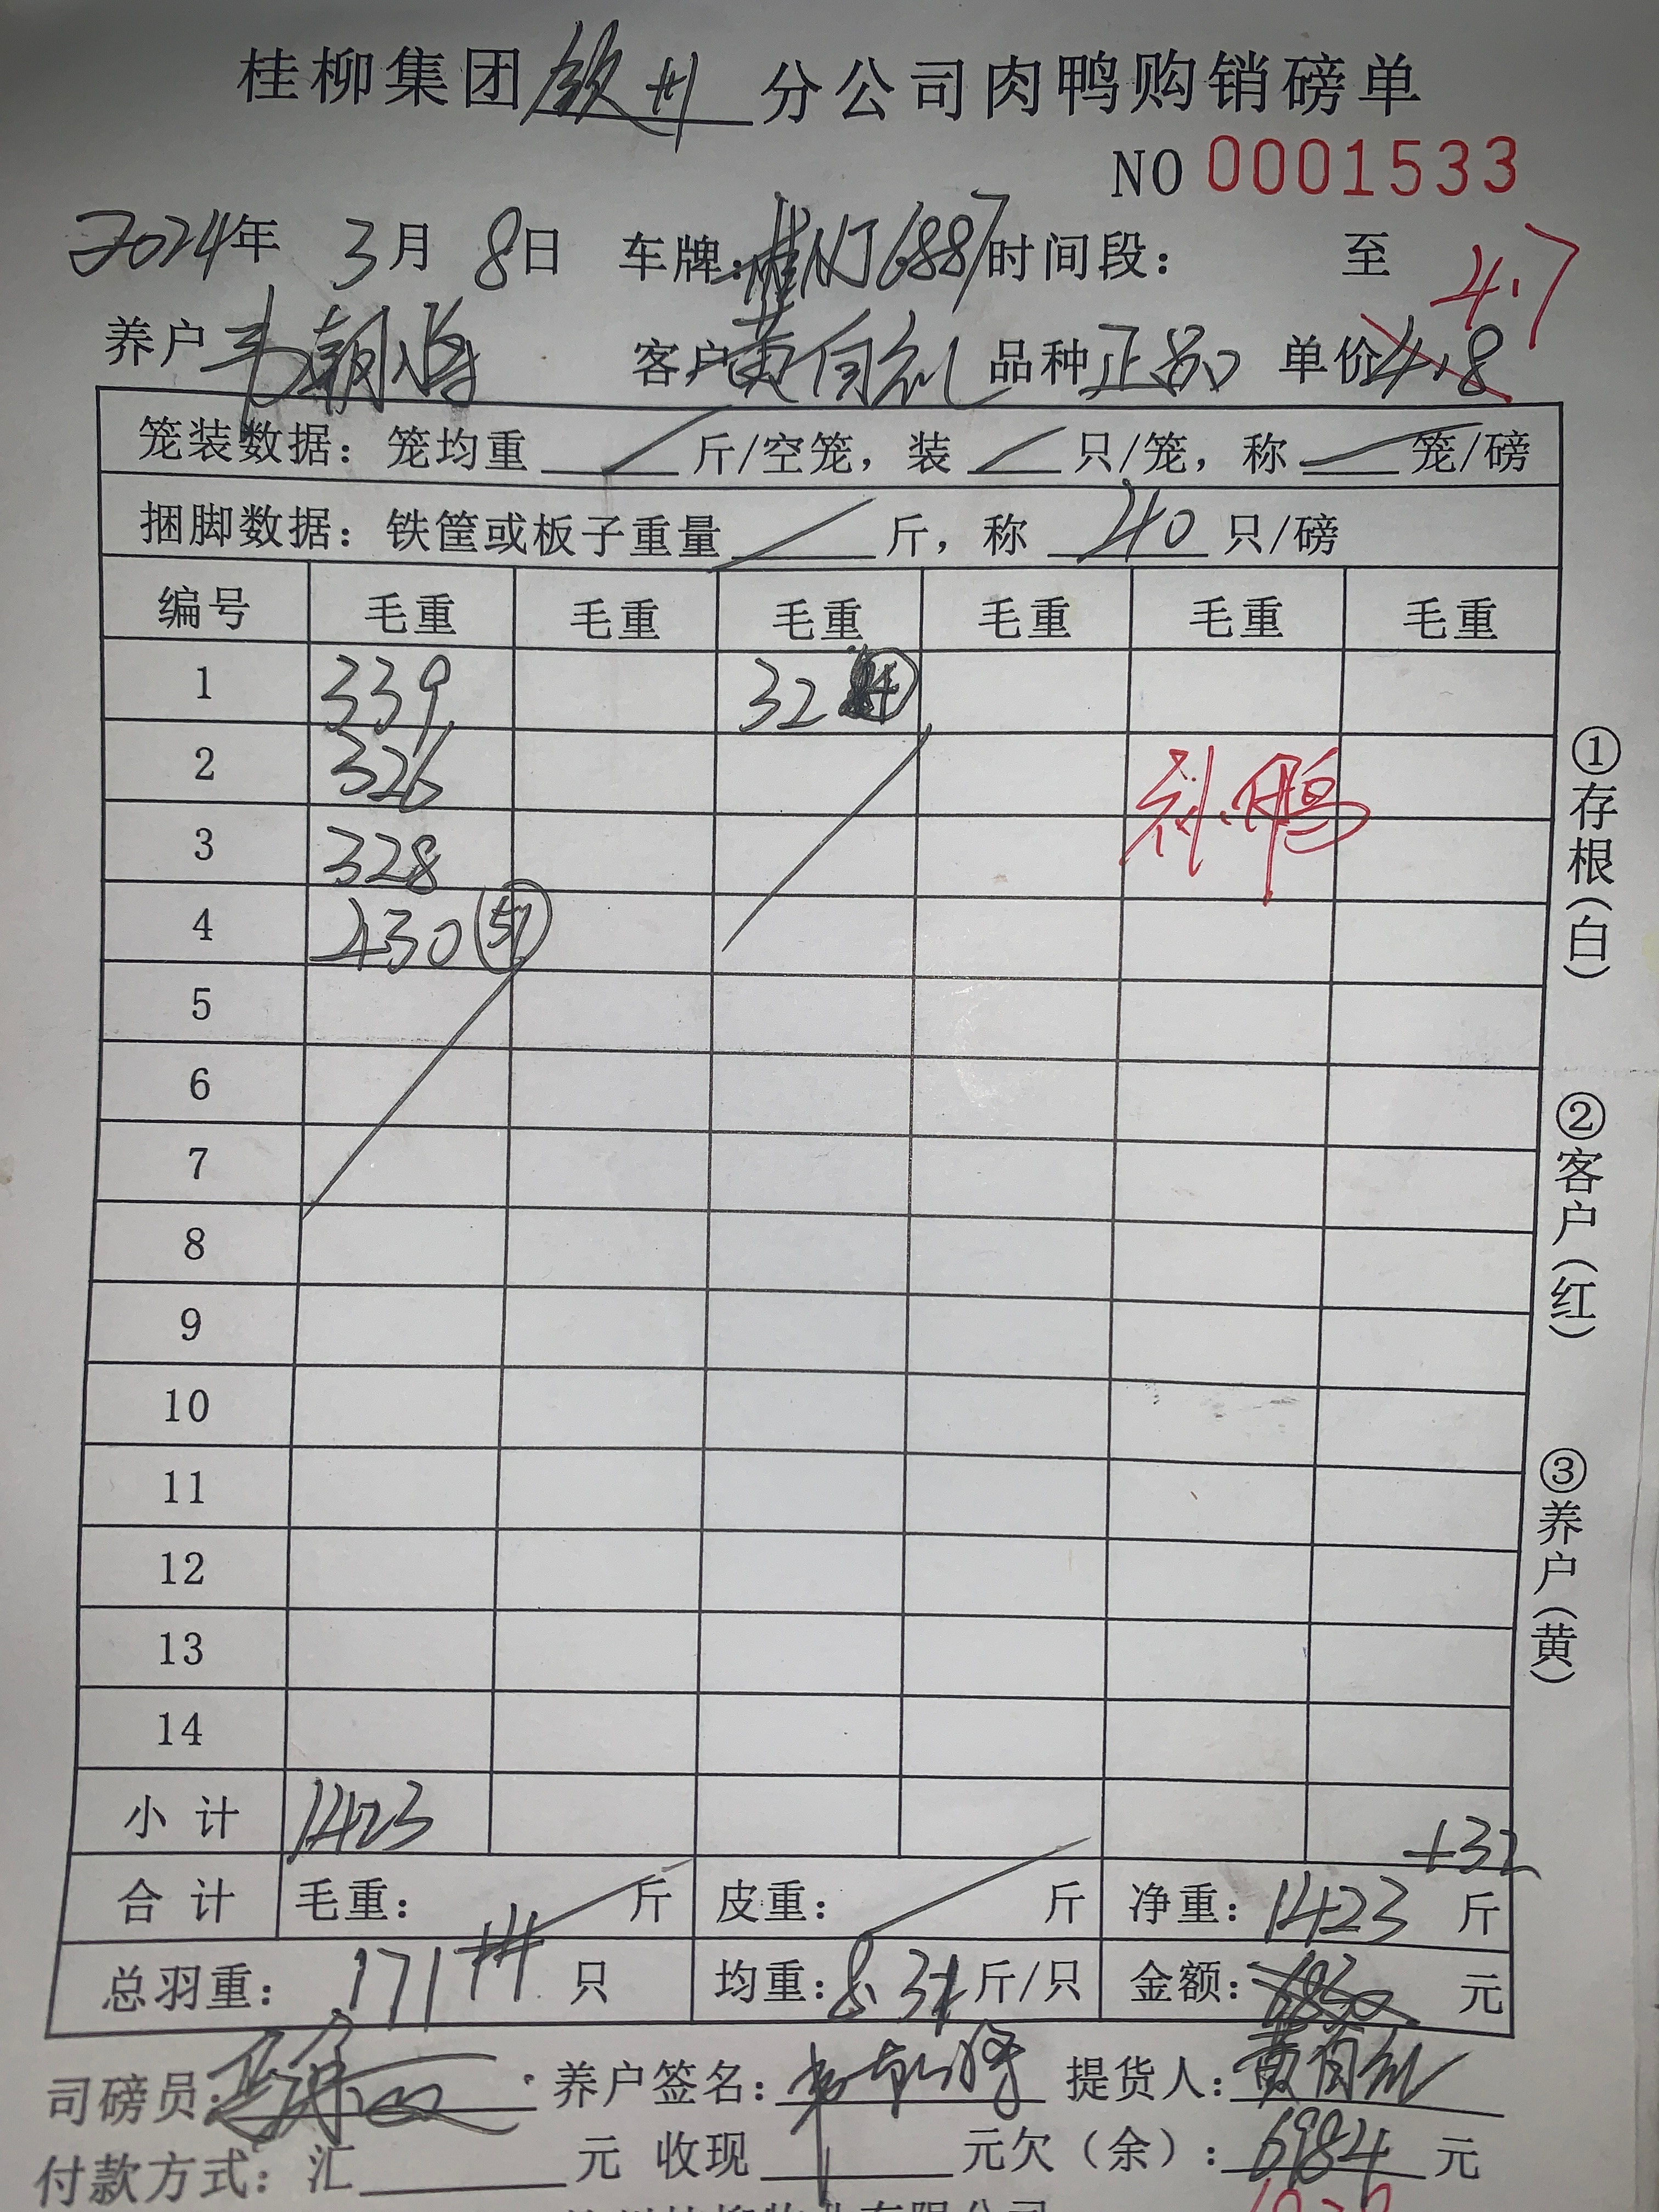 桂柳集团钦州分公司肉鸭购销磅单
NO 0001533
2024年 3月 8日 车牌:桂NJ6887时间段: 至
4.7
养户 客户黄 品种正品 单价4.8
笼装数据:笼均重 斤/空笼,装 只/笼,称 笼/磅
捆脚数据:铁筐或板子重量 斤,称 40 只/磅
编号 毛重 毛重 毛重 毛重 毛重 毛重
1 339 32 4
2 326
3 328
4 430 51
5
6
7
8
9
10
11
12
13
14
鸭
小计 1423
+32
合计 毛重: 斤 皮重: 斤 净重:1423 斤
总羽重: 171 只 均重:8.32斤/只 金额:6830 元
司磅员: 养户签名: 提货人:黄
付款方式:汇 元 收现 元欠(余):6984 元
①存根(白)
②客户(红)
③养户(黄)